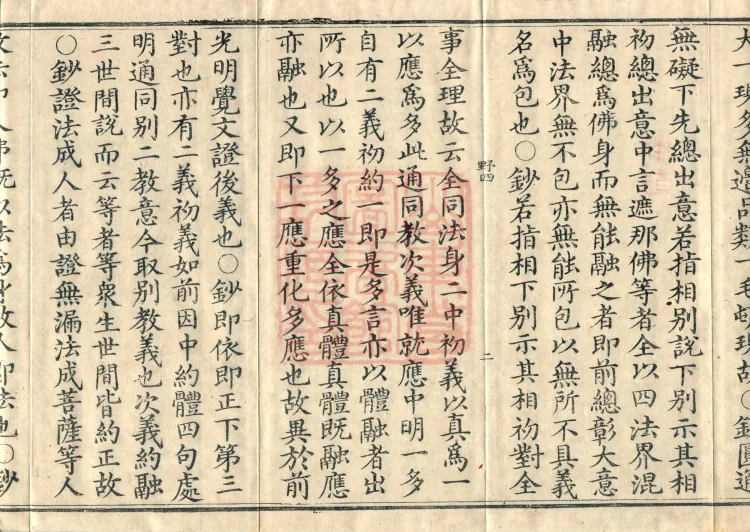 大一現多無邊品類一毛頓現故〇鈔圓通
無礙下先總出意若指相別說下別示其相
初總出意中言遮那佛等者全以四法界混
融總為佛身而無能融之者即前總彰大意
中法界無不包亦無能所包以無所不具義
名為包也〇鈔若指相下別示其相初對全
野四
二
事全理故云全同法身二中初義以真為一
以應為多此通同教次義唯就應中明一多
自有二義初約一即是多言亦以體融者出
所以也以一多之應全依真體真體既融應
亦融也又即下一應重化多應也故異於前
光明覺文證後義也〇鈔即依即正下第三
對也亦有二義初義如前因中約體四句處
明通同別二教意今取別教義也次義約融
三世間說而云等者等衆生世間皆約正故
〇鈔證法成人者由證無漏法成菩薩等人